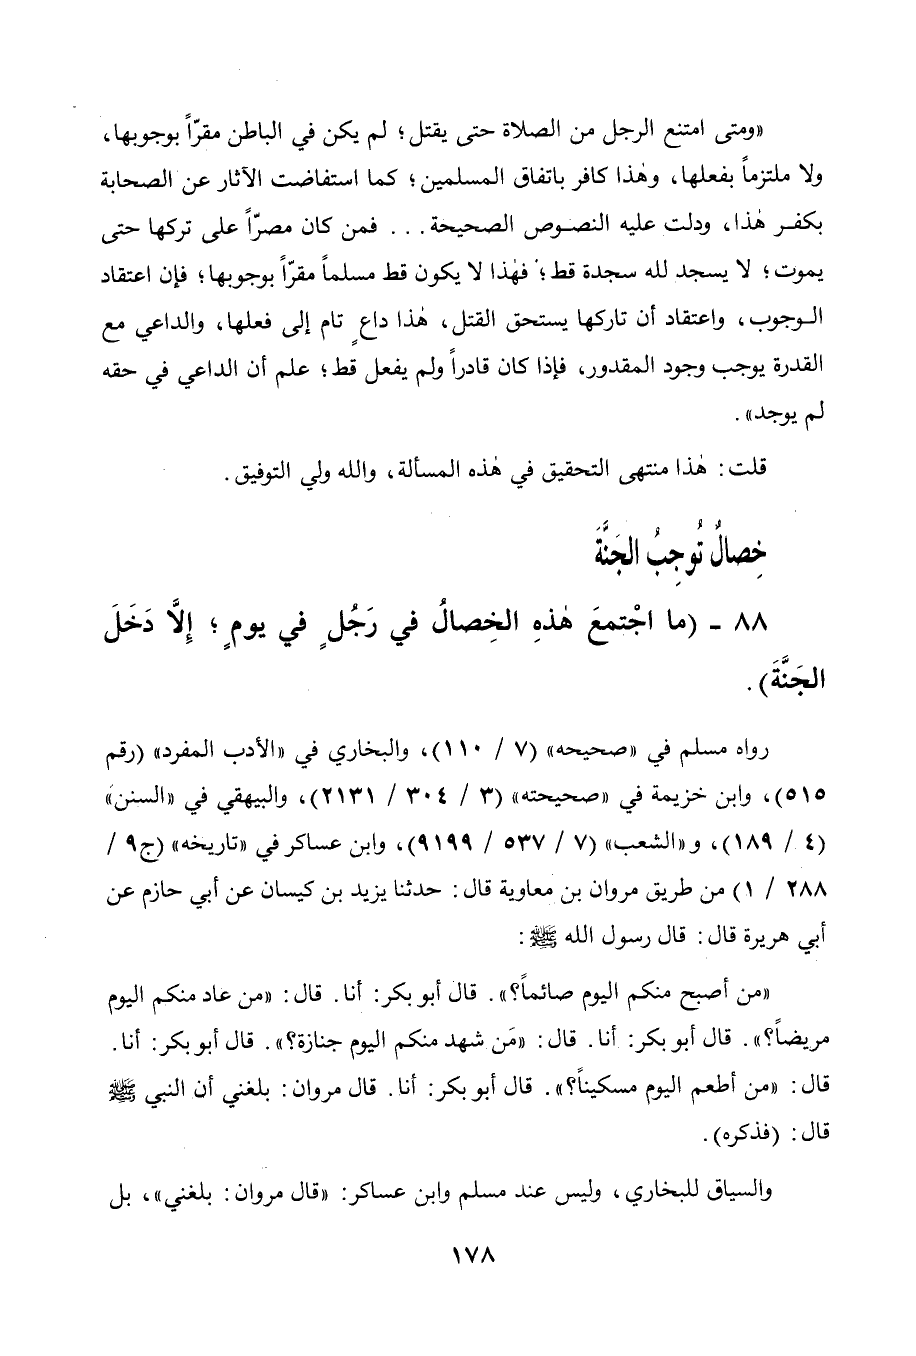 «ومتى امتنع الرجل من الصلاة حتى يقتل؛ لم يكن في الباطن مقرّاً بوجوبها،
ولا ملتزماً بفعلها، وهٰذا كافر باتفاق المسلمين؛ كما استفاضت الآثار عن الصحابة
بكفـر هٰذا، ودلت عليه النصـوص الصحيحة... فمن كان مصرّاً على تركها حتى
يموت؛ لا يسجد لله سجدة قط؛ فهٰذا لا يكون قط مسلماً مقرّاً بوجوبها؛ فإن اعتقاد
الـوجوب، واعتقاد أن تاركها يستحق القتل، هٰذا داعٍ تام إلى فعلها، والداعي مع
القدرة يوجب وجود المقدور، فإذا كان قادراً ولم يفعل قط؛ علم أن الداعي في حقه
لم يوجد».
قلت: هٰذا منتهى التحقيق في هٰذه المسألة، والله ولي التوفيق.
خِصالٌ تُوجِبُ الجَنَّةَ
٨٨ - (ما اجْتمعَ هٰذهِ الخِصالُ في رَجُلٍ في يومٍ؛ إِلَّا دَخَلَ
الجَنَّةَ).
رواه مسلم في «صحيحه» (٧ / ١١٠)، والبخاري في «الأدب المفرد» (رقم
٥١٥)، وابن خزيمة في «صحيحته» (٣ / ٣٠٤ / ٢١٣١)، والبيهقي في «السنن»
(٤ / ١٨٩)، و«الشعب» (٧ / ٥٣٧ / ٩١٩٩)، وابن عساكر في «تاريخه» (ج٩ /
٢٨٨ / ١) من طريق مروان بن معاوية قال: حدثنا يزيد بن كيسان عن أبي حازم عن
أبي هريرة قال: قال رسول الله ﷺ:
«من أصبح منكم اليوم صائماً؟». قال أبو بكر: أنا. قال: «من عاد منكم اليوم
مريضاً؟». قال أبو بكر: أنا. قال: «مَن شهد منكم اليوم جنازة؟». قال أبو بكر: أنا.
قال: «من أطعم اليوم مسكيناً؟». قال أبو بكر: أنا. قال مروان: بلغني أن النبي ﷺ
قال: (فذكره).
والسياق للبخاري، وليس عند مسلم وابن عساكر: «قال مروان: بلغني»، بل
١٧٨